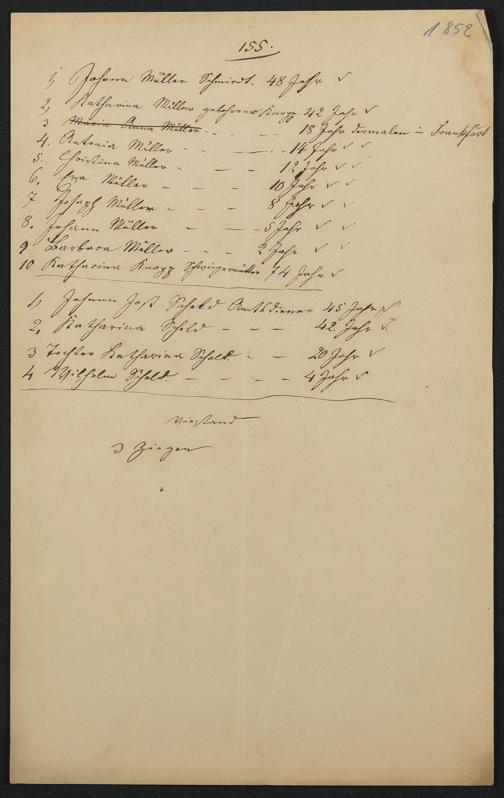 1852
155.
1, Johann Müller Schmiedt. 48 Jahr
2, Katharina Müller geborhene Knapp 42 Jahr
3 Maria Anna Müller - - - 18 Jahr dermalen in Frankfurt
4. Antonia Müller - - - 14 Jahr
5. Christina Müller - - - 12 Jahr
6. Eva Müller - - - 10 Jahr
7 Joseph Müller - - - 8 Jahr
8. Johann Müller - - - 5 Jahr
9 Barbara Müller - - - 2 Jahr
10 Katharina Knapp. Schwiegermutter 74 Jahr
1, Johann Jost Scheld Amtsdiener 45 Jahr
2, Katharina Scheld - - - 42 Jahr
3 Tochter Katharina Scheld. - - 20 Jahr
4 Wilhelm Scheld. - - - - 4 Jahr
Viehstand
3 Ziegen